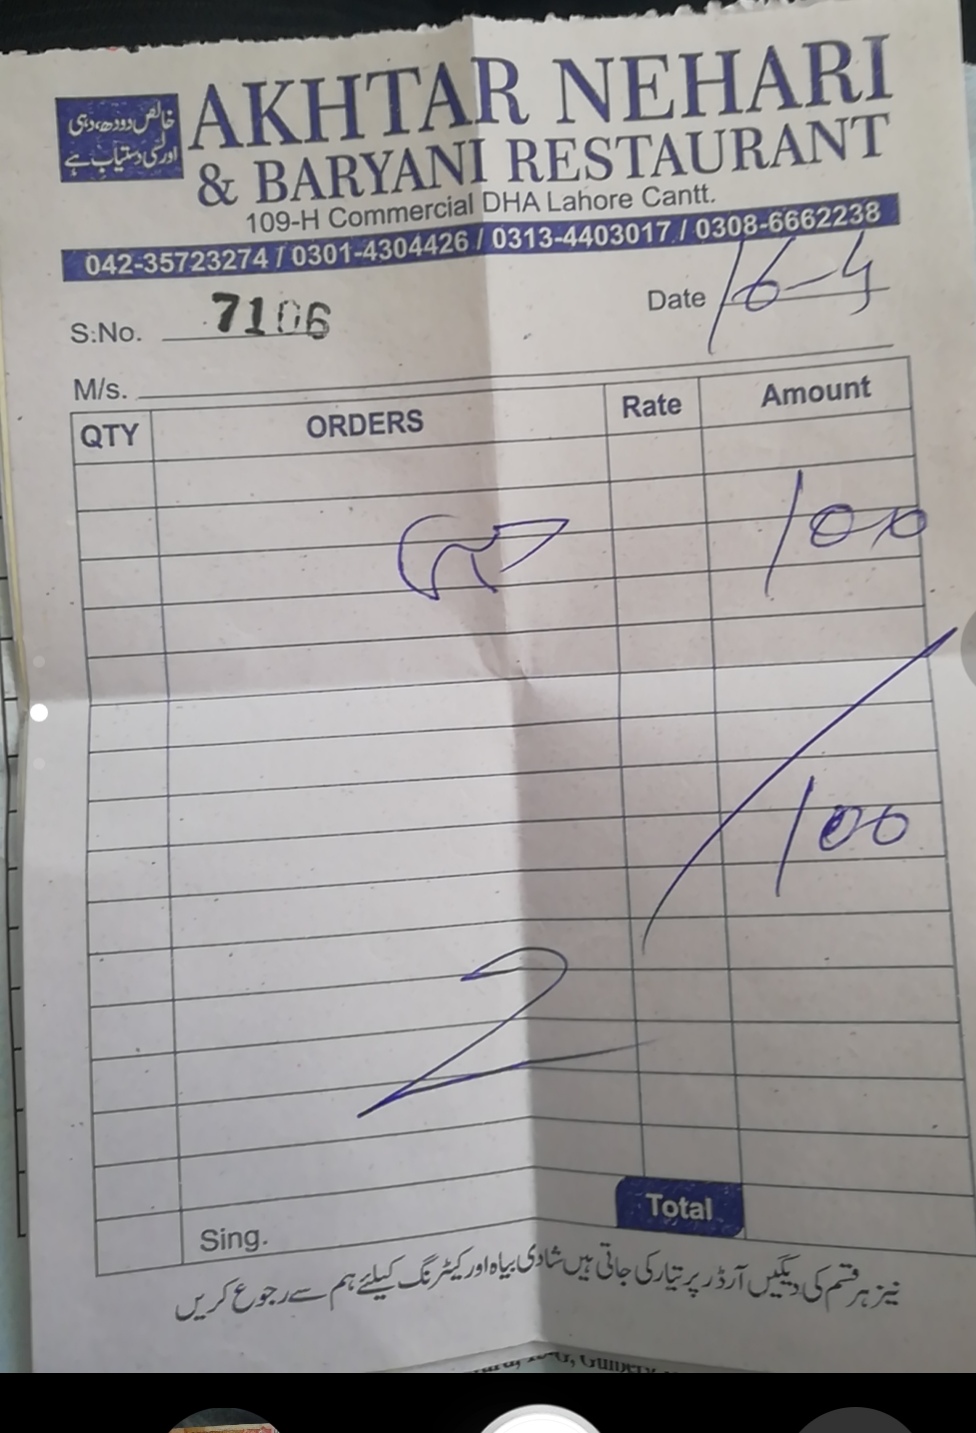 خالص دودھ، دہی
اور لسی دستیاب ہے
AKHTAR NEHARI
& BARYANI RESTAURANT
109-H Commercial DHA Lahore Cantt.
042-35723274 / 0301-4304426 / 0313-4403017 / 0308-6662238
S:No. 7106
Date 16-4
M/s.
QTY ORDERS Rate Amount
100
100
Total
Sing.
نیز ہر قسم کی دیگیں آرڈر پر تیار کی جاتی ہیں شادی بیاہ اور کیٹرنگ کیلئے ہم سے رجوع کریں